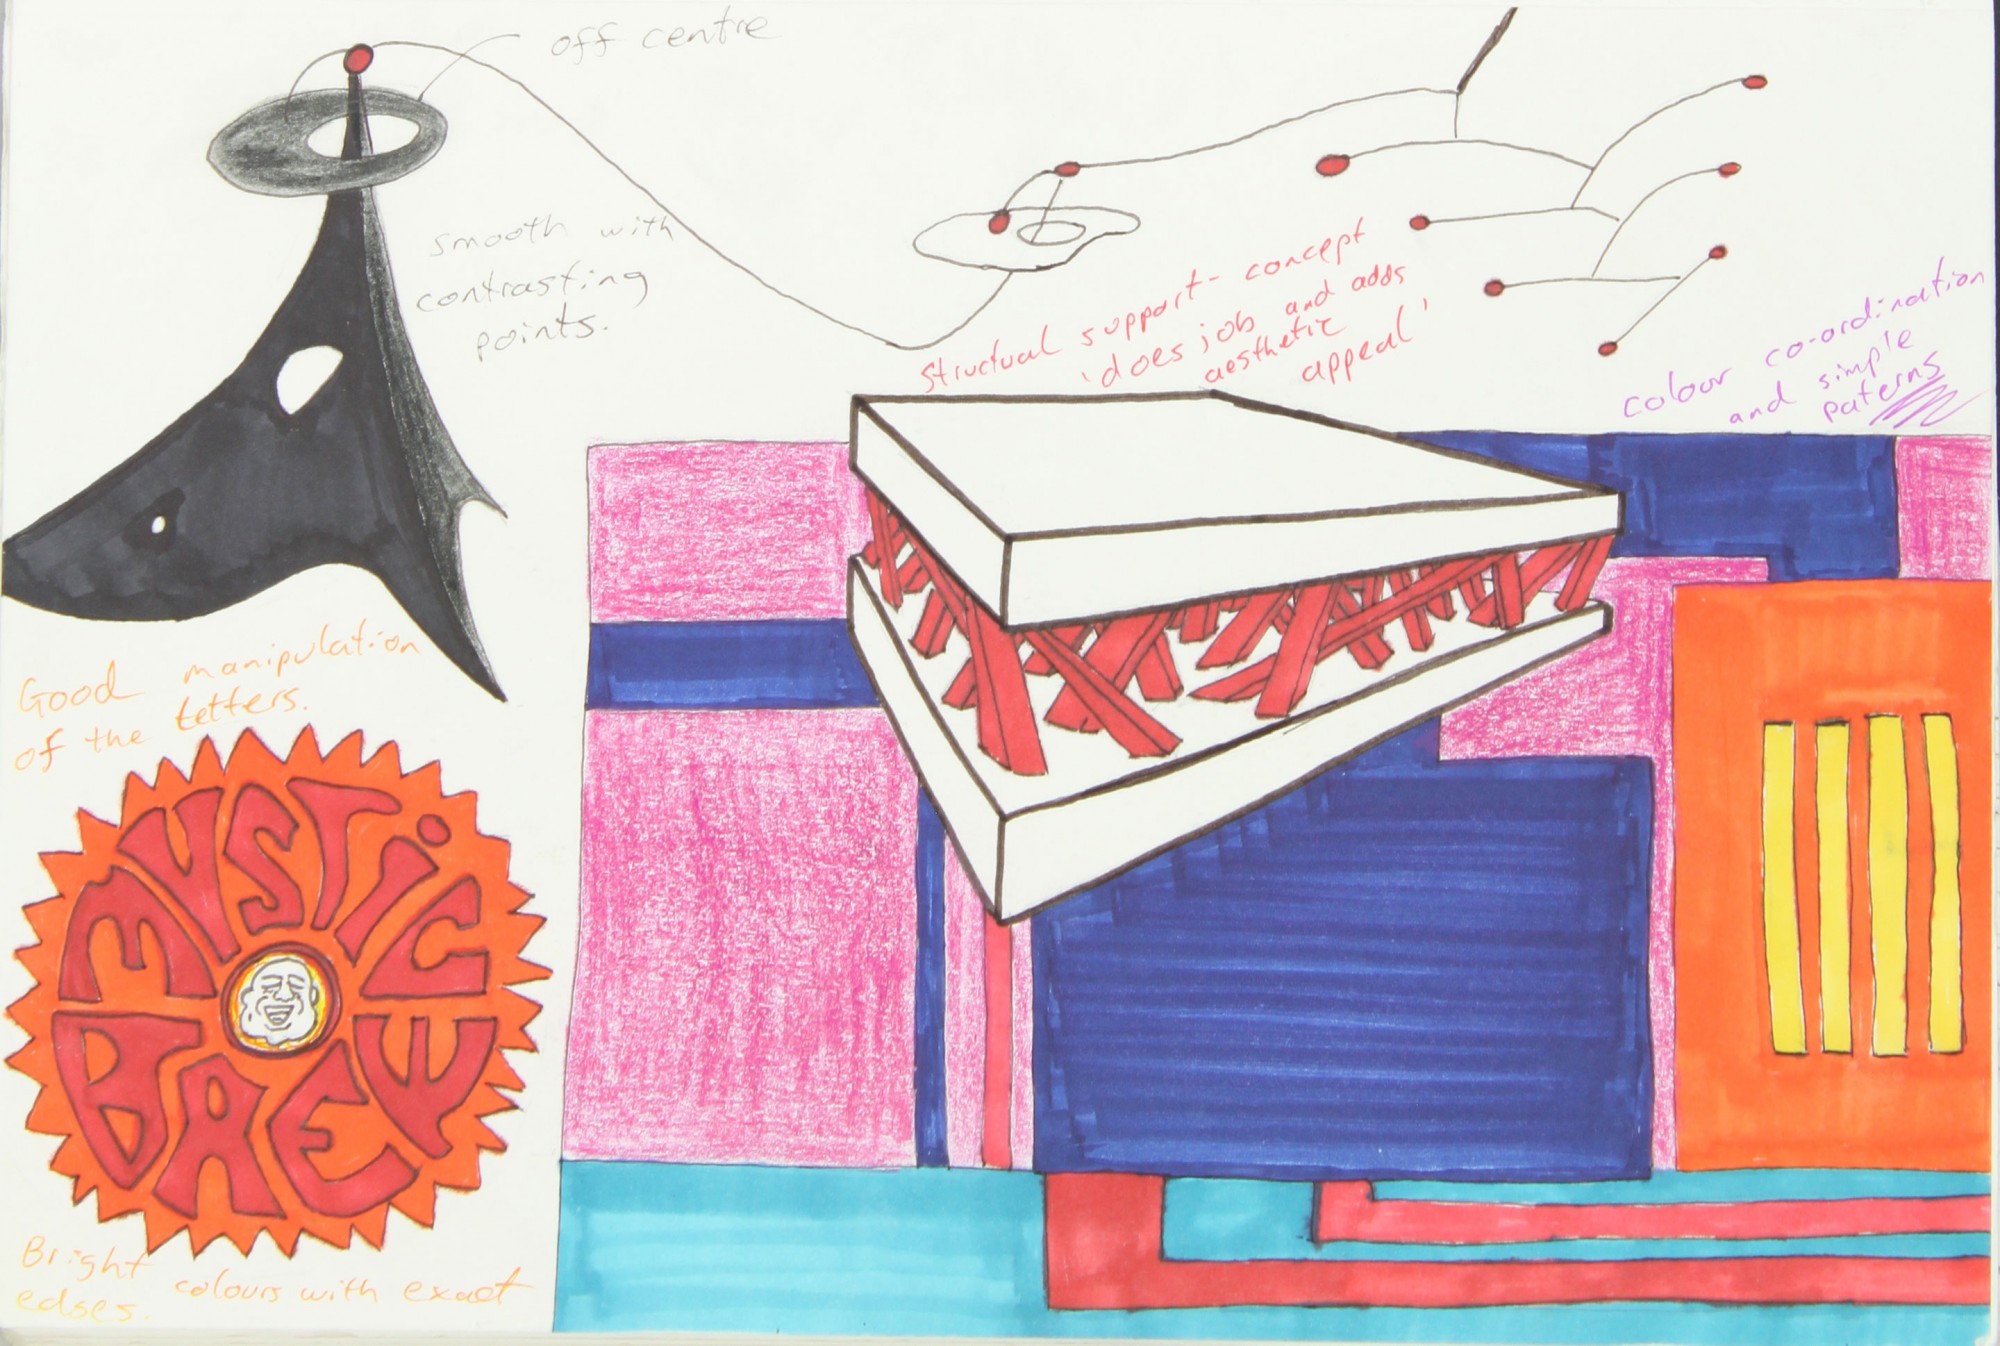 off centre
smooth with
contrasting
points.
Structual support - concept
'does job and adds
aesthetic
appeal'
colour co-ordination
and simple
paterns
Good manipulation
of the letters.
MYSTIC
BREW
Bright
colours with exact
edges.